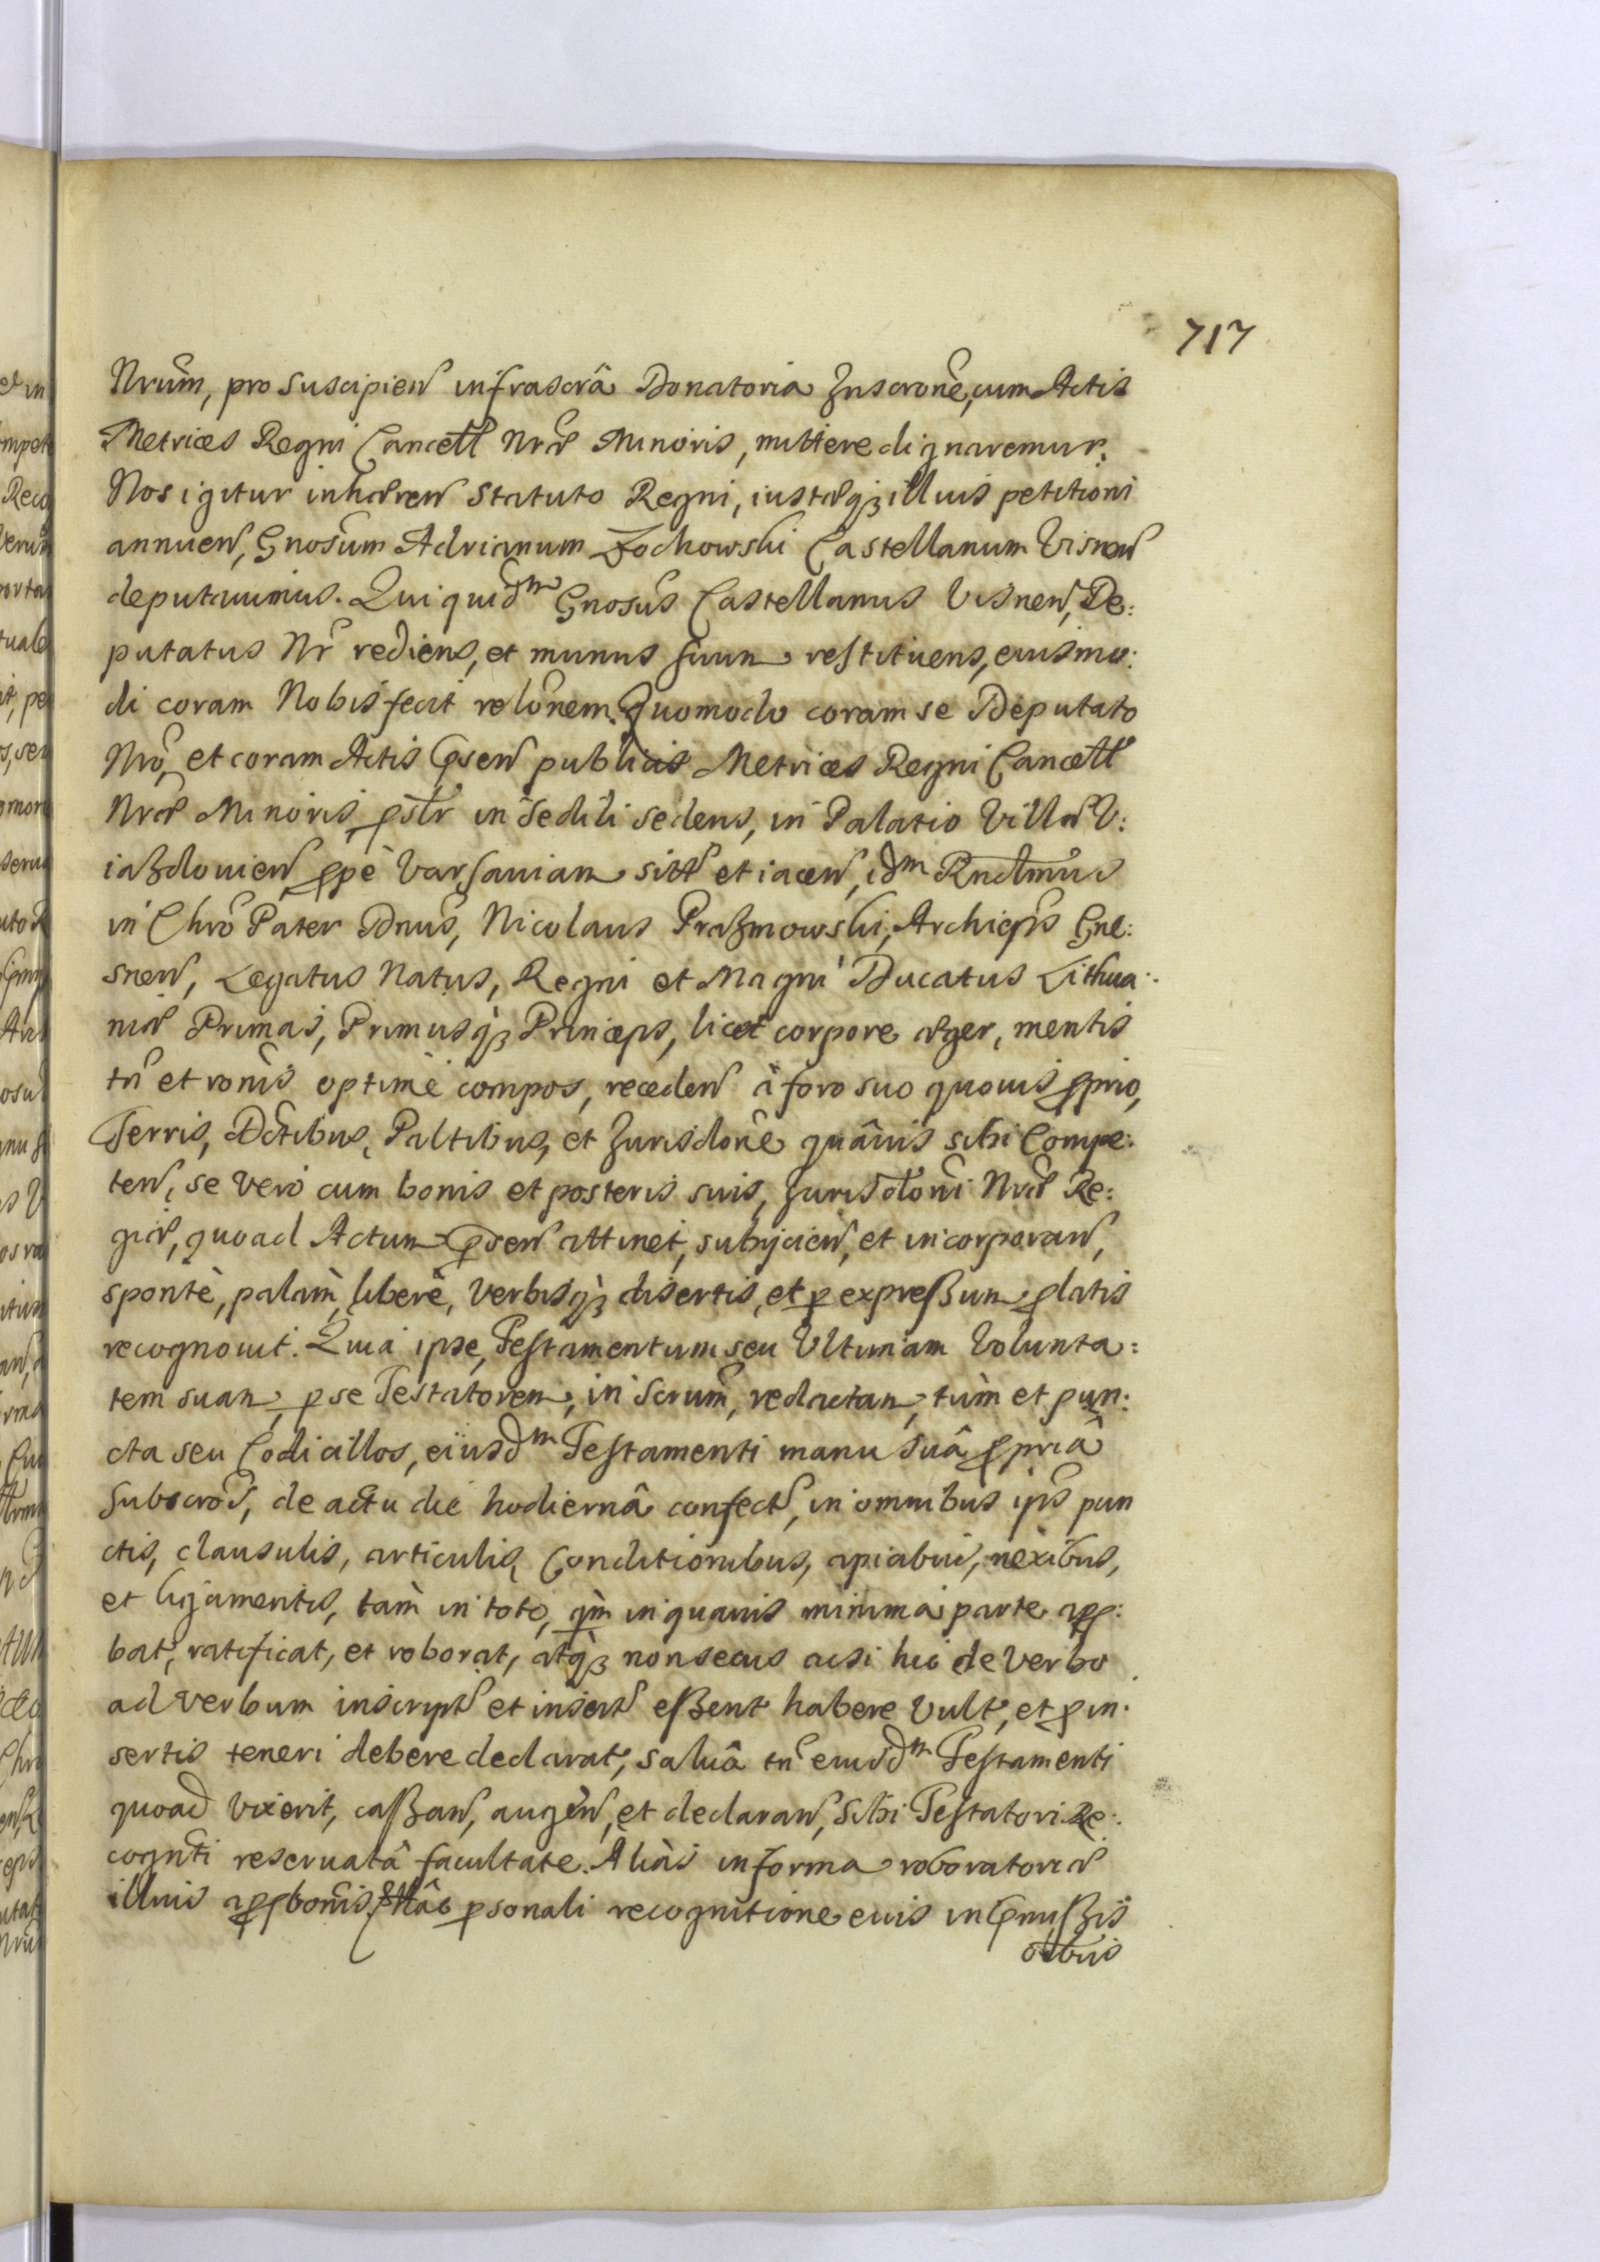 717
Nrûm, pro suscipien infrascrâ Donatoria Inscrone, cum Actis
Metrices Regni Cancell Nræ Minoris, mittere dignaremur.
Nos igitur inhæren Statuto Regni, iustæq; illius petitioni
annuen, Gnosum Adrianum Żochowski Castellanum Visnen
deputauimus. Qui quidm Gnosus Castellanus Visnen, De:
putatus Nr rediens, et munus suum restituens, eiusmo:
di coram Nobis fecit relonem. Quomodo coram se Deputato
Nro, et coram Actis psen publicis Metrices Regni Cancell
Nræ Minoris pslr in sedili sedens, in Palatio Villæ V:
iaßdouien, ppe Varsauiam sitt et iacen, idm Rndlmus
in Chro Pater Dnus, Nicolaus Praßmowski, Archieps Gne:
snen, Legatus Natus, Regni et Magni Ducatus Lithua:
niæ Primas, Primusq; Princeps, licet corpore æger, mentis
tn et ronis optimè compos, receden à foro suo quouis pprio,
Terris, Dctibus, Paltibus, et Jurisdone quâuis sibi Compe:
ten, se verò cum bonis et posteris suis, Jurisdloni Nræ Re:
giæ, quoad Actum psen attinet, subijcien, et incorporan,
spontè, palàm, liberè, verbisq; disertis, et p expreßum platis
recognouit. Quia ipse, Testamentum seu Vltimam Volunta:
tem suam, p se Testatorem, in Scrum, redactam, tùm et pun:
cta seu Codicillos, eiusdm Testamenti manu suâ ppriâ
subscros, de actu die hodiernâ confect, in omnibus ips pun
ctis, clausulis, articulis, Conditionibus, apicibus, nexibus,
et ligamentis, tam in toto, qm in quauis minima parte app:
bat, ratificat, et roborat, atq; non secus acsi hic de verbo
ad verbum inscript et insert eßent habere vult, et p in:
sertis teneri debere declarat, saluâ tn eiusdm Testamenti
quoad vixerit, caßan, augen, et declaran, Sibi Testatori Re:
cognti reseruatâ facultate. Aliàs in forma roboratoriæ
illius appbonis. hâc psonali recognitione eius in pmißis
oibus